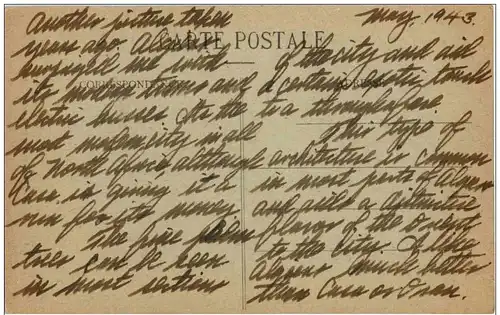 Another picture taken
years ago. Algiers
surprised me with
its many trams and
electric busses. It's the
most modern city in all
of North Africa, although
Casa is giving it a
run for its money.
The fine palm
trees can be seen
in most sections
May, 1943.
CARTE POSTALE
CORRESPONDANCE
ADRESSE
of the city and aid
a certain exotic touch
to a atmosphere
This type of
architecture is common
in most parts of Algiers
and aids a distinctive
flavor of the Orient
to the city. I like
Algiers much better
than Casa or Oran.